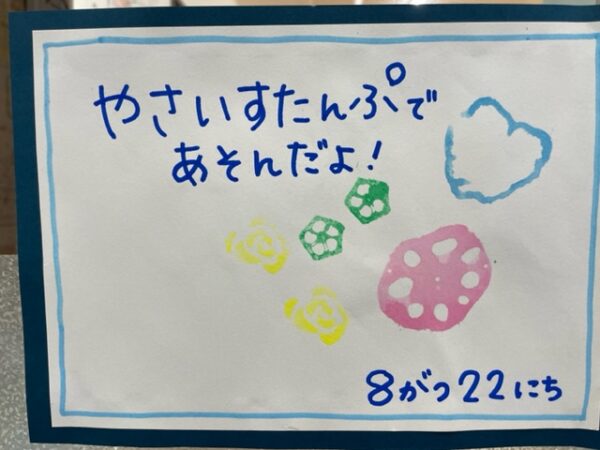 やさいすたんぷで
あそんだよ!
8がつ22にち